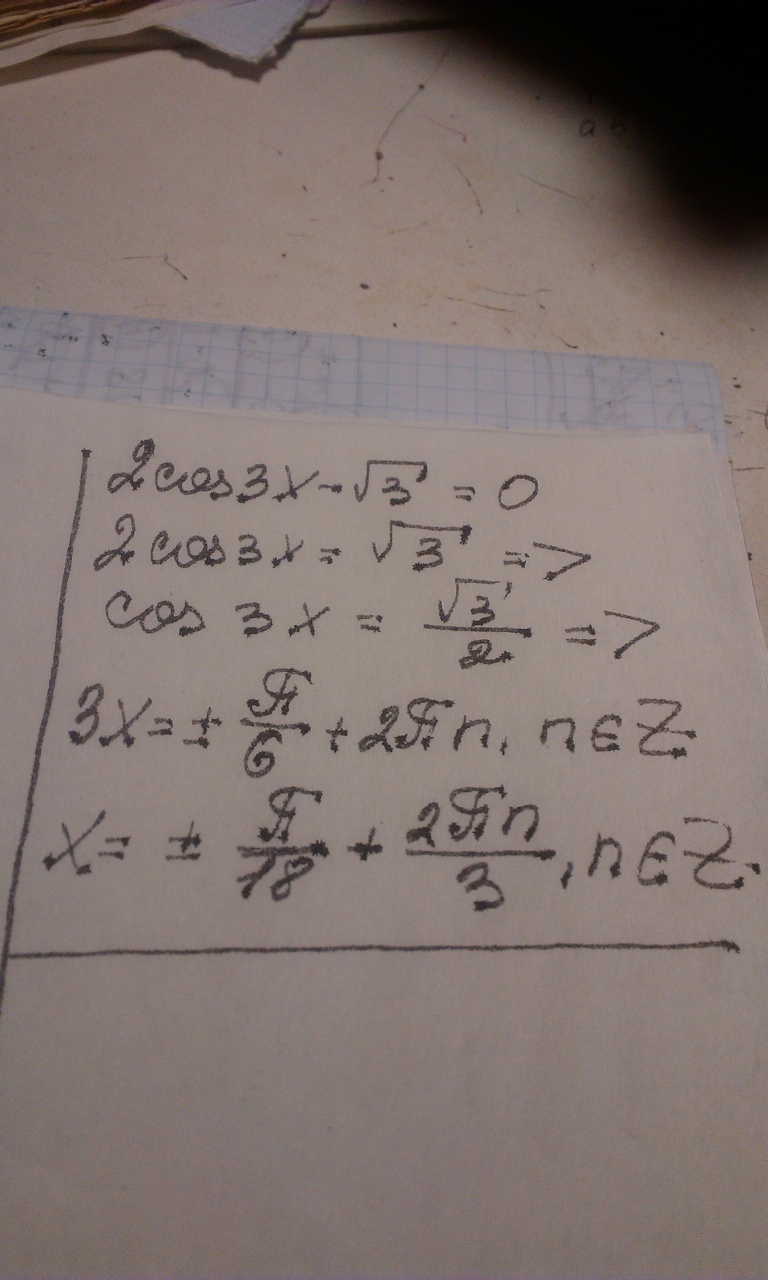 2cos3x-√3 = 0
2cos3x = √3 =>
cos 3x = √3/2 =>
3x = ± π/6 + 2πn, n∈Z.
x = ± π/18 + 2πn/3, n∈Z.